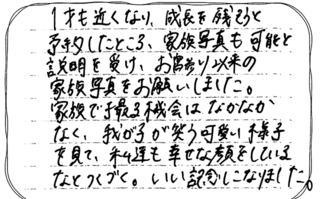 1才も近くなり、成長を残そうと
予約したところ、家族写真も可能と
説明を受け、お宮参り以来の
家族写真をお願いしました。
家族で撮る機会はなかなか
なく、我が子が笑う可愛い様子
を見て、私達も幸せな顔をしている
なとつくづく。いい記念になりました。